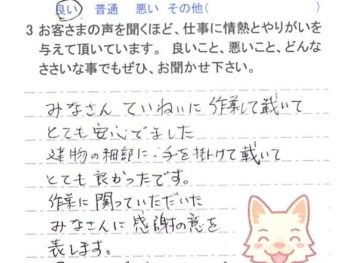 良い 普通 悪い その他(　　　　)
3 お客さまの声を聞くほど、仕事に情熱とやりがいを
与えて頂いています。 良いこと、悪いこと、どんな
ささいな事でもぜひ、お聞かせ下さい。
みなさん ていねいに 作業して戴いて
とても安心でました
建物の細部に手を掛けて戴いて
とても良かったです。
作業に関っていただいた
みなさんに感謝の意を
表します。